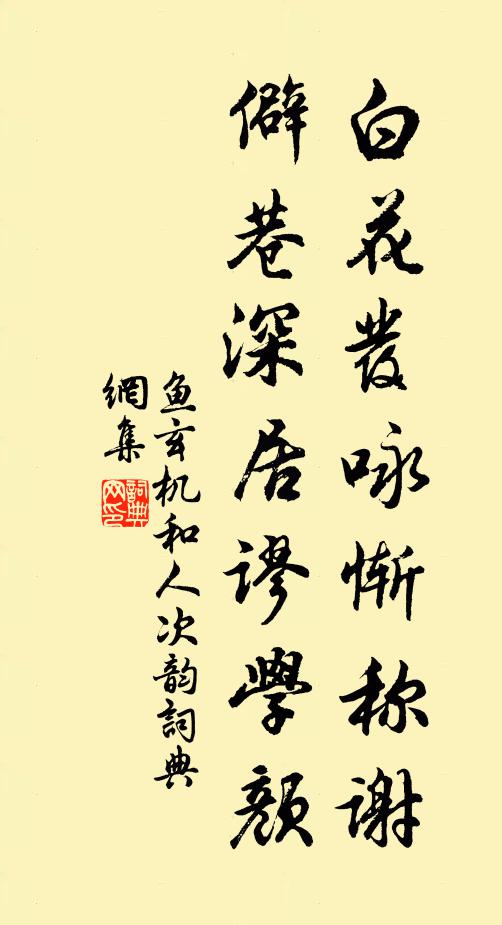 白花发咏惭称谢
僻巷深居谬學颜
鱼玄机和人次韵詞典
網集
詞典
网印